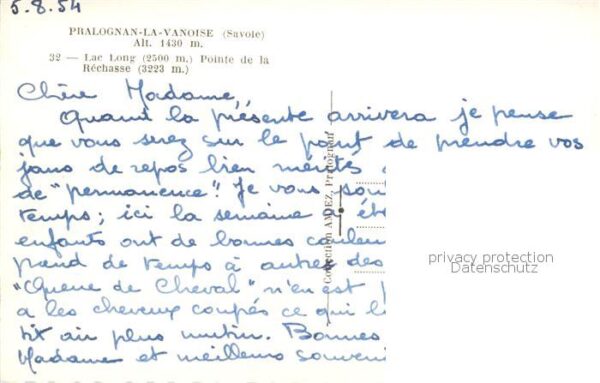 5.8.54
PRALOGNAN-LA-VANOISE (Savoie)
Alt. 1430 m.
32 — Lac Long (2500 m.) Pointe de la
Réchasse (3223 m.)
Chère Madame,
Quand la présente arrivera je pense
que vous serez sur le point de prendre vos
jours de repos bien mérités
de "permanence". Je vous
temps; ici la semaine a
enfants ont de bonnes
de temps à autres des
"Queue de Cheval" n'en est
a les cheveux coupés ce qui
tit air plus mutin. Bonnes
Madame et meilleurs
Collection ANDEZ, Pralognan
privacy protection
Datenschutz